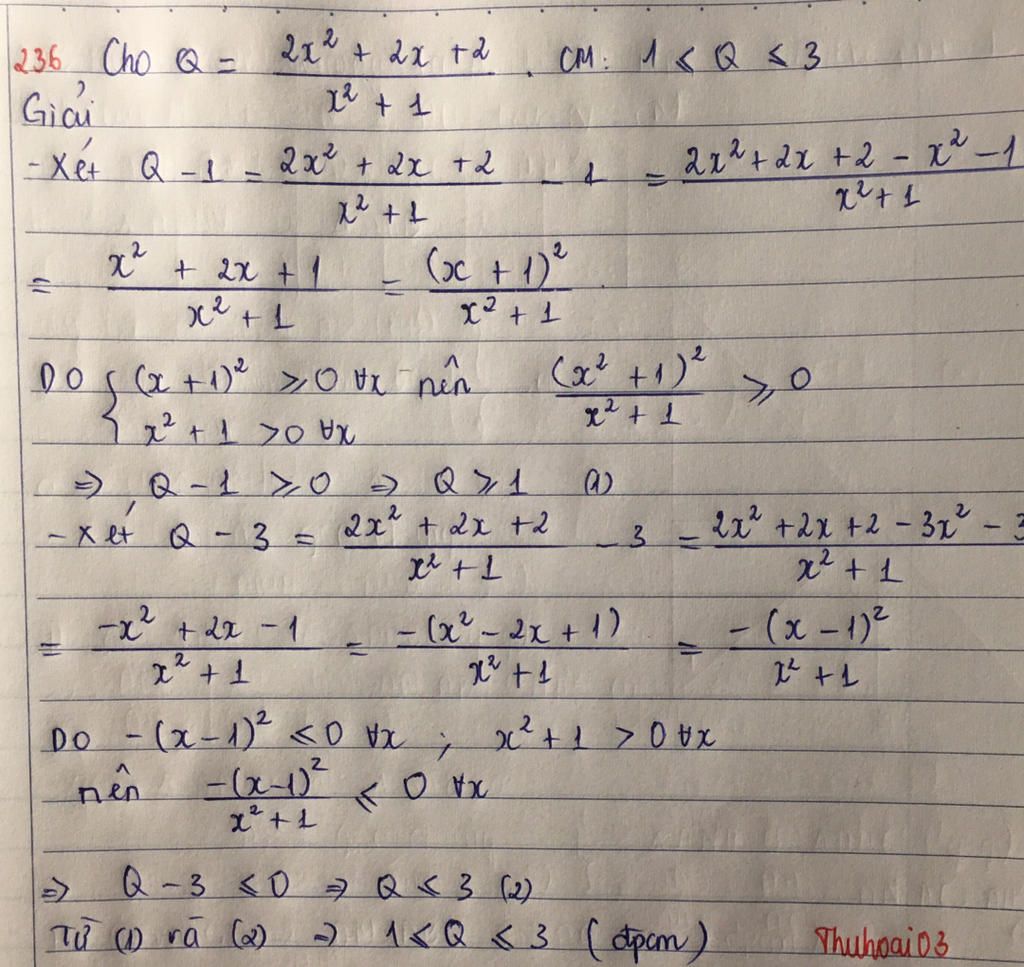 236 Cho Q = (2x² + 2x + 2)/(x² + 1) . CM: 1 ≤ Q ≤ 3
Giải
- Xét Q - 1 = (2x² + 2x + 2)/(x² + 1) - 1 = (2x² + 2x + 2 - x² - 1)/(x² + 1)
= (x² + 2x + 1)/(x² + 1) = (x + 1)²/(x² + 1).
Do { (x + 1)² ≥ 0 ∀x nên (x² + 1)²/(x² + 1) ≥ 0
x² + 1 > 0 ∀x
⇒ Q - 1 ≥ 0 ⇒ Q ≥ 1 (1)
- Xét Q - 3 = (2x² + 2x + 2)/(x² + 1) - 3 = (2x² + 2x + 2 - 3x² - 3)/(x² + 1)
= (-x² + 2x - 1)/(x² + 1) = -(x² - 2x + 1)/(x² + 1) = -(x - 1)²/(x² + 1)
Do -(x - 1)² ≤ 0 ∀x ; x² + 1 > 0 ∀x
nên -(x-1)²/(x² + 1) ≤ 0 ∀x
⇒ Q - 3 ≤ 0 ⇒ Q ≤ 3 (2)
Từ (1) và (2) ⇒ 1 ≤ Q ≤ 3 (đpcm) Thuhoai03